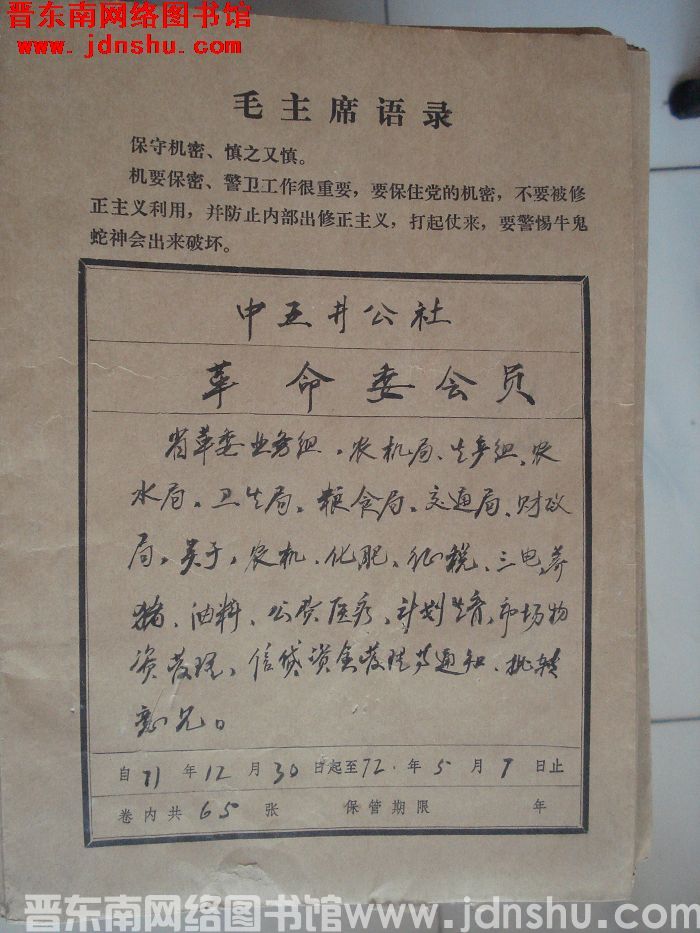 晋东南网络图书馆
www.jdnshu.com
毛主席语录
保守机密、慎之又慎。
机要保密、警卫工作很重要，要保住党的机密，不要被修
正主义利用，并防止内部出修正主义，打起仗来，要警惕牛鬼
蛇神会出来破坏。
中五井公社
革命委会员
省革委业务组、农机局、生产组、农
水局、卫生局、粮食局、交通局、财政
局、关于、农机、化肥、征税、三电、养
猪、油料、公费医疗、计划生育、市场物
资管理、信贷资金管理等通知、批转
意见。
自71年12月30日起至72.年5月9日止
卷内共65张 保管期限 年
晋东南网络图书馆www.jdnshu.com